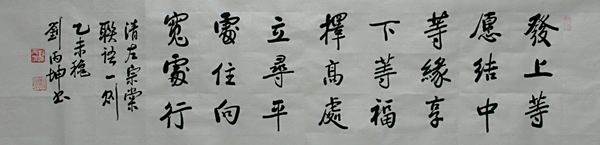 發上等
愿結中
等緣享
下等福
擇高處
立尋平
處住向
寬處行
清左宗棠
聯語一則
乙未穐
劉丙坤书